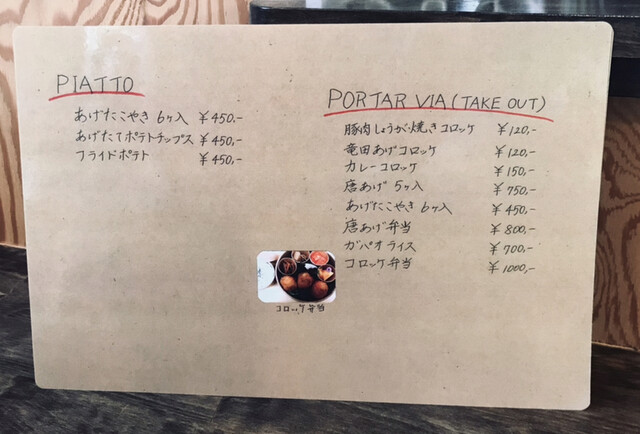 PIATTO
あげたこやき 6ヶ入 ¥450,-
あげたてポテトチップス ¥450,-
フライドポテト ¥450,-
PORTAR VIA (TAKE OUT)
豚肉しょうが焼きコロッケ ¥120,-
竜田あげコロッケ ¥120,-
カレーコロッケ ¥150,-
唐あげ 5ヶ入 ¥750,-
あげたこやき 6ヶ入 ¥450,-
唐あげ弁当 ¥800,-
ガパオライス ¥700,-
コロッケ弁当 ¥1000,-
コロッケ弁当